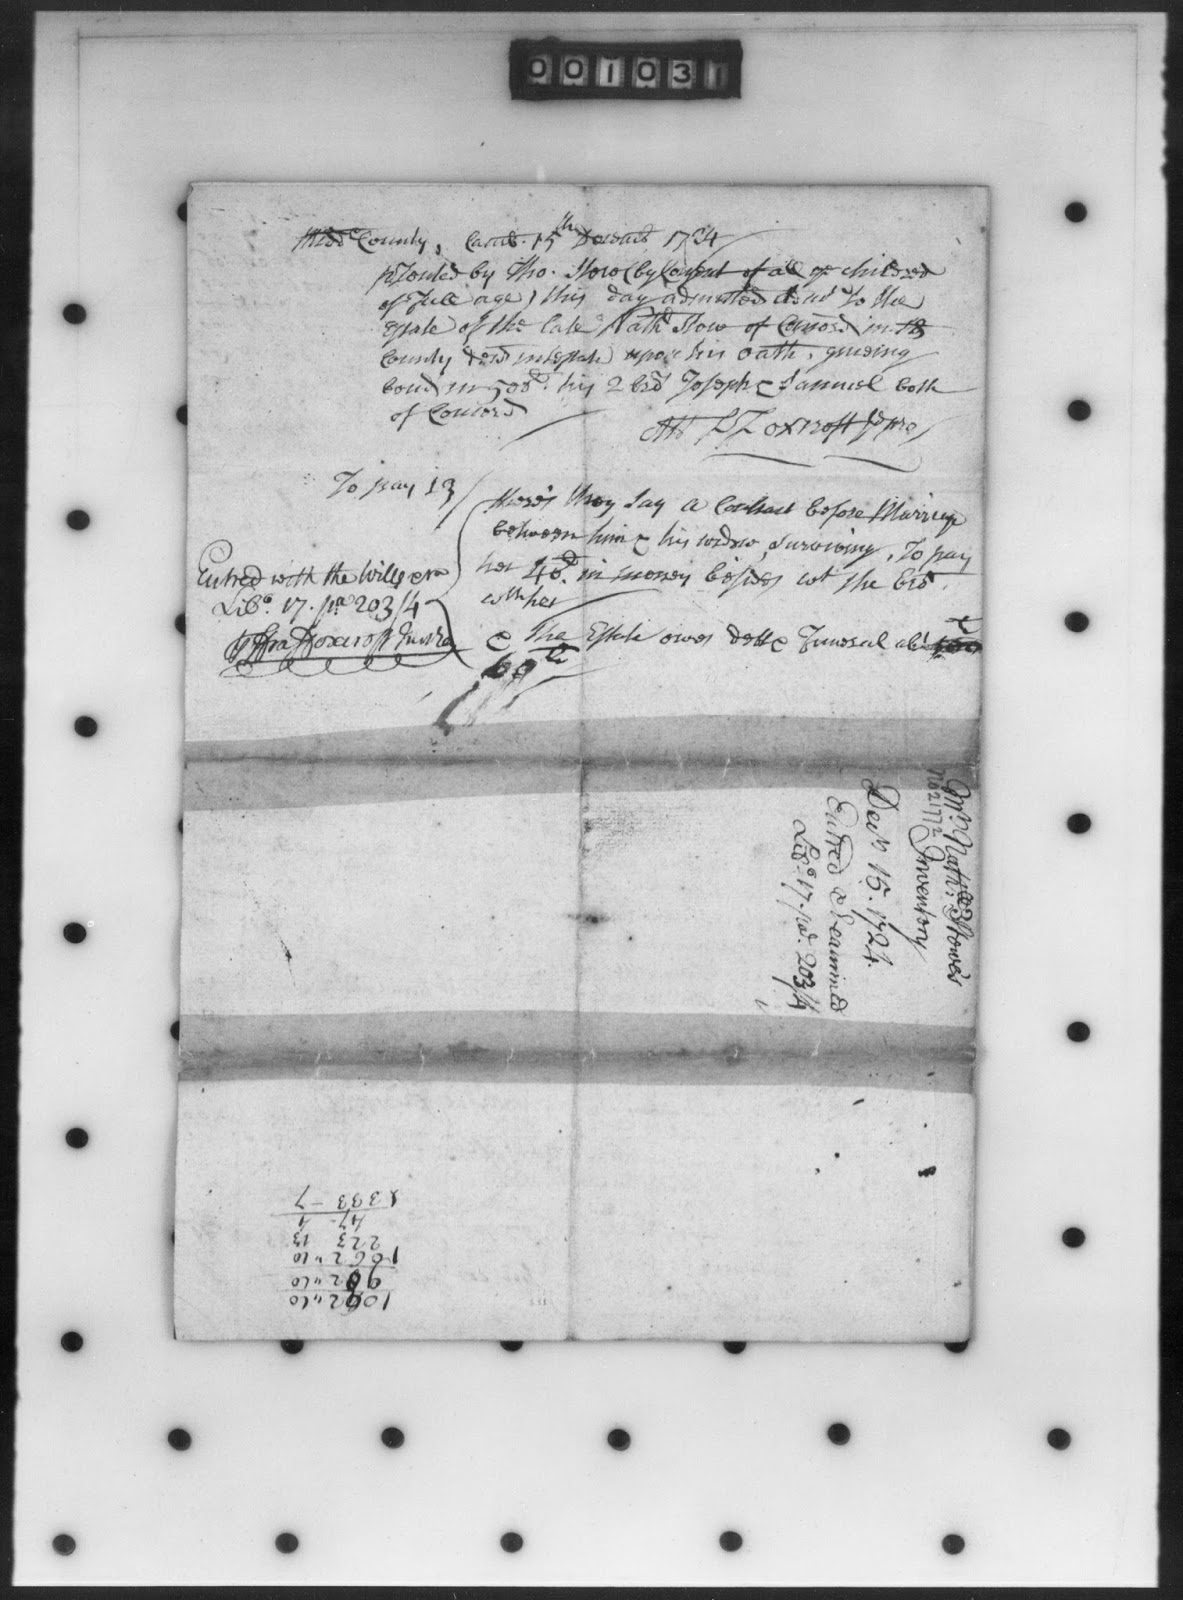 001031
Midd County, Camb. 15th Decemb. 1724
by Tho. Stow (by Consent of all ye children
of full age) this day admitted to the
Estate of the late Nath Stow of Concord in
County intestate upon his oath, giveing
bond in 500 his 2 bro Joseph & Samuel both
of Concord
Att Foxcroft J pro
To pay 13/
there's they say a Contract before Marriage
between him & his widow surviving, To pay
her 40 in money besides wt she bro
wth her
& The Estate owes debt & Funeral abt
60
Entred with the Wills
Libo. 17. pa 203/4
Fra Foxcroft
Mr. Nath: Stowe's
No 21772 Inventory
Decr 15. 1724.
Entred & Examined
Libo. 17. pa. 203/4
1092"10
902"10
1062"10
223 13
47 1
£333-7